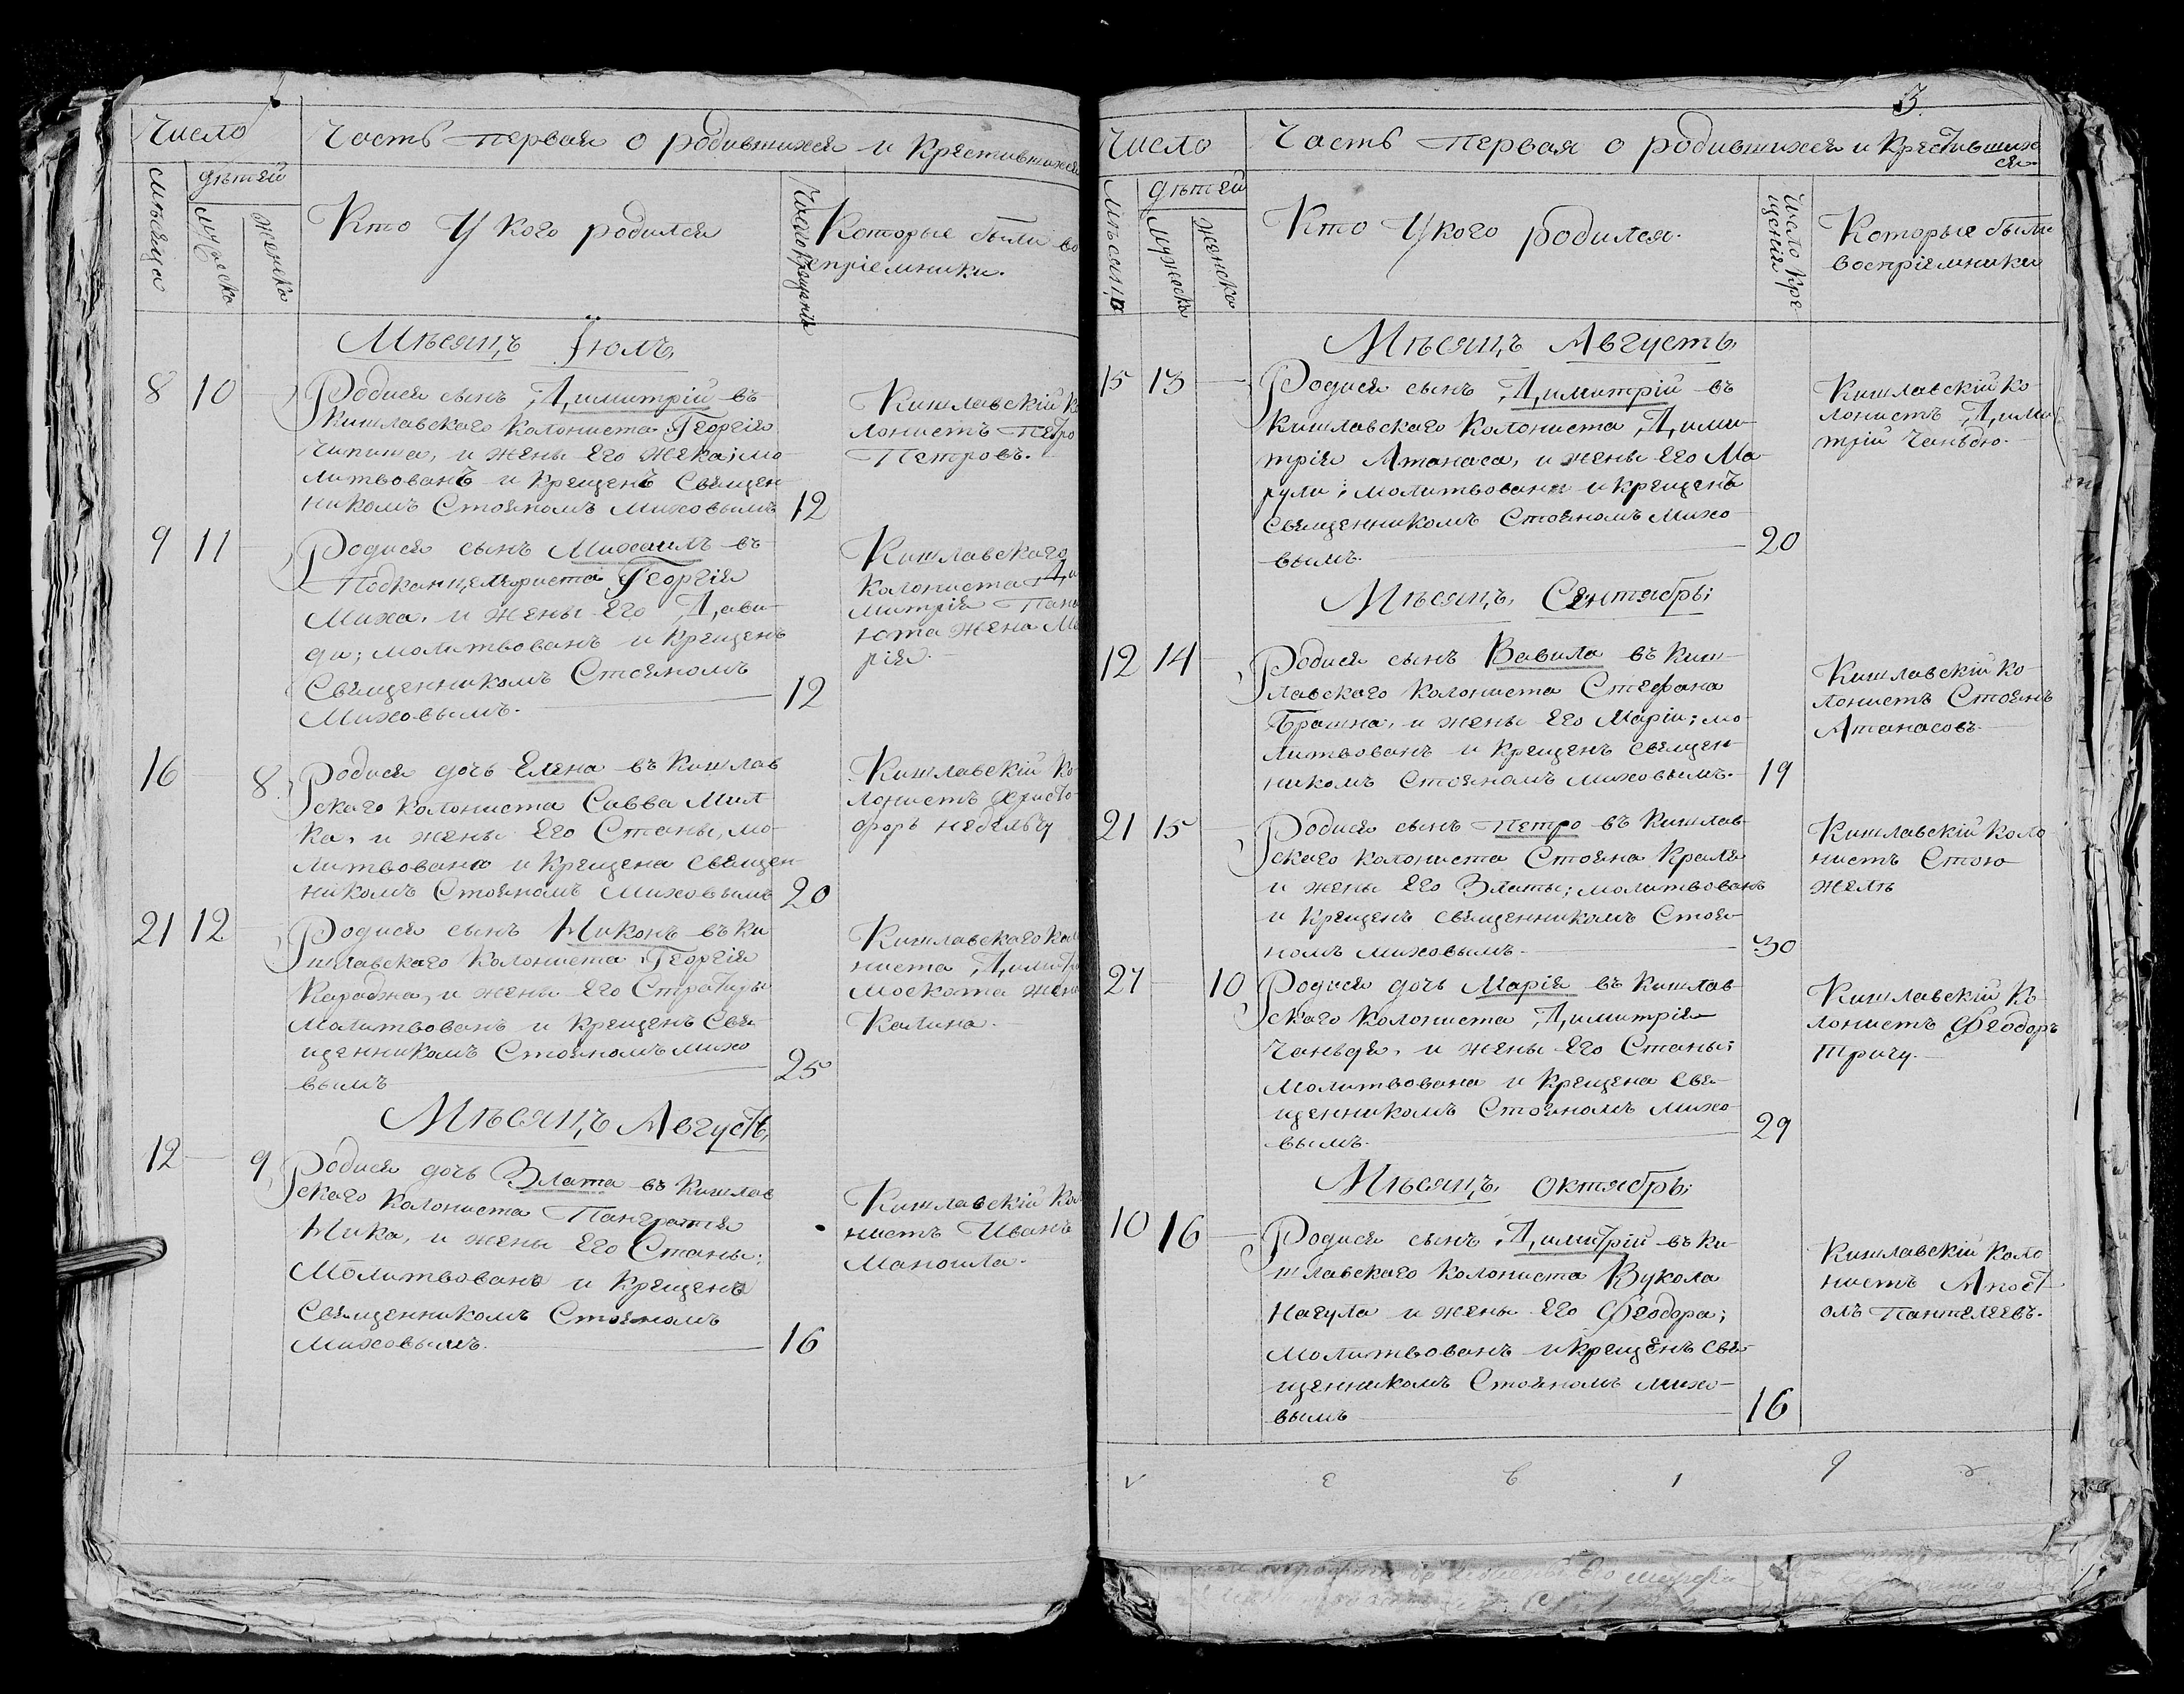 Число
Часть первая о родившихся и крестившихся
дѣтей
мѣсяца
мужеска
женска
Кто У кого родился
Число крещенія
Которые были во
спріемники.
Мѣсяцъ Іюль,
8 10 Родися сынъ Димитрій въ
Кишлавскаго колониста Георгія
Чипиша, и жены Его Жека; мо-
литвованъ и крещенъ Священ-
никомъ Стояномъ Миховымъ 12
Кишлавскій Ко
лонистъ Петро
Петровъ.
9 11 Родися сынъ Михаилъ въ
Подканцеляриста Георгія
Миха, и жены Его Дави-
ди; молитвованъ и крещенъ
Священникомъ Стояномъ
Миховымъ. 12
Кишлавскаго
колониста Ди
митрія Пана
іота жена Ма
рія.
16 8 Родися дочь Елена въ Кишлав
скаго колониста Савва Мил
ка, и жены Его Станы, мо-
литвована и крещена священ-
никомъ Стояномъ Миховымъ 20
Кишлавскій Ко
лонистъ Христо-
форъ Недельчу
21 12 Родися сынъ Никонъ въ Ки
шлавскаго колониста Георгія
Караджа, и жены Его Стратиры
молитвованъ и крещенъ Свя-
щенникомъ Стояномъ Михо
вымъ 25
Кишлавскаго коло
ниста Димитра
Москота жена
Калина.
Мѣсяцъ Августъ,
12 9 Родися дочь Злата въ Кишлав
скаго колониста Панкратія
Ника, и жены Его Станы;
Молитвована и крещена
Священникомъ Стояномъ
Миховымъ. 16
Кишлавскій Коло
нистъ Иванъ
Маноила.
3.
Число
Часть Первая о родившихся и Крестивших
ся.
Мѣсяца
дѣтей
Мужеска
женска
Кто У кого родился.
Число кре
щенія
Которые были
воспріемники
Мѣсяцъ Августъ,
15 13 Родися сынъ Димитрій въ
Кишлавскаго Колониста Дими-
трія Атанаса, и жены Его Ма-
рули; молитвованъ и крещенъ
Священникомъ Стояномъ Михо-
вымъ. 20
Кишлавскій ко-
лонистъ Дими
трій Чаньдю.
Мѣсяцъ, Сентябрь;
12 14 Родися сынъ Вавила въ Киш-
лавскаго колониста Стефана
Брашна, и жены Его Маріи; мо-
литвованъ и крещенъ священ-
никомъ Стояномъ Миховымъ. 19
Кишлавскій Ко-
лонистъ Стоянъ
Атанасовъ.
21 15 Родися сынъ Петро въ Кишлав-
скаго колониста Стояна Краля
и жены Его Златы; молитвованъ
и крещенъ священникомъ Стоя-
номъ Миховымъ. 30
Кишлавскій коло
нистъ Стою
Желѣ
27 10 Родися дочь Марія въ Кишлав-
скаго колониста Димитрія
Чаньдя, и жены Его Станы;
молитвована и крещена Свя-
щенникомъ Стояномъ Михо-
вымъ. 29
Кишлавскій Ко-
лонистъ Феодоръ
Тричу.
Мѣсяцъ, Октябрь;
10 16 Родися сынъ Димитрій въ Ки-
шлавскаго колониста Вукола
Нагула и жены Его Феодора;
молитвованъ и крещенъ свя-
щенникомъ Стояномъ Михо-
вымъ 16
Кишлавскій коло
нистъ Апост
олъ Пантелеевъ.